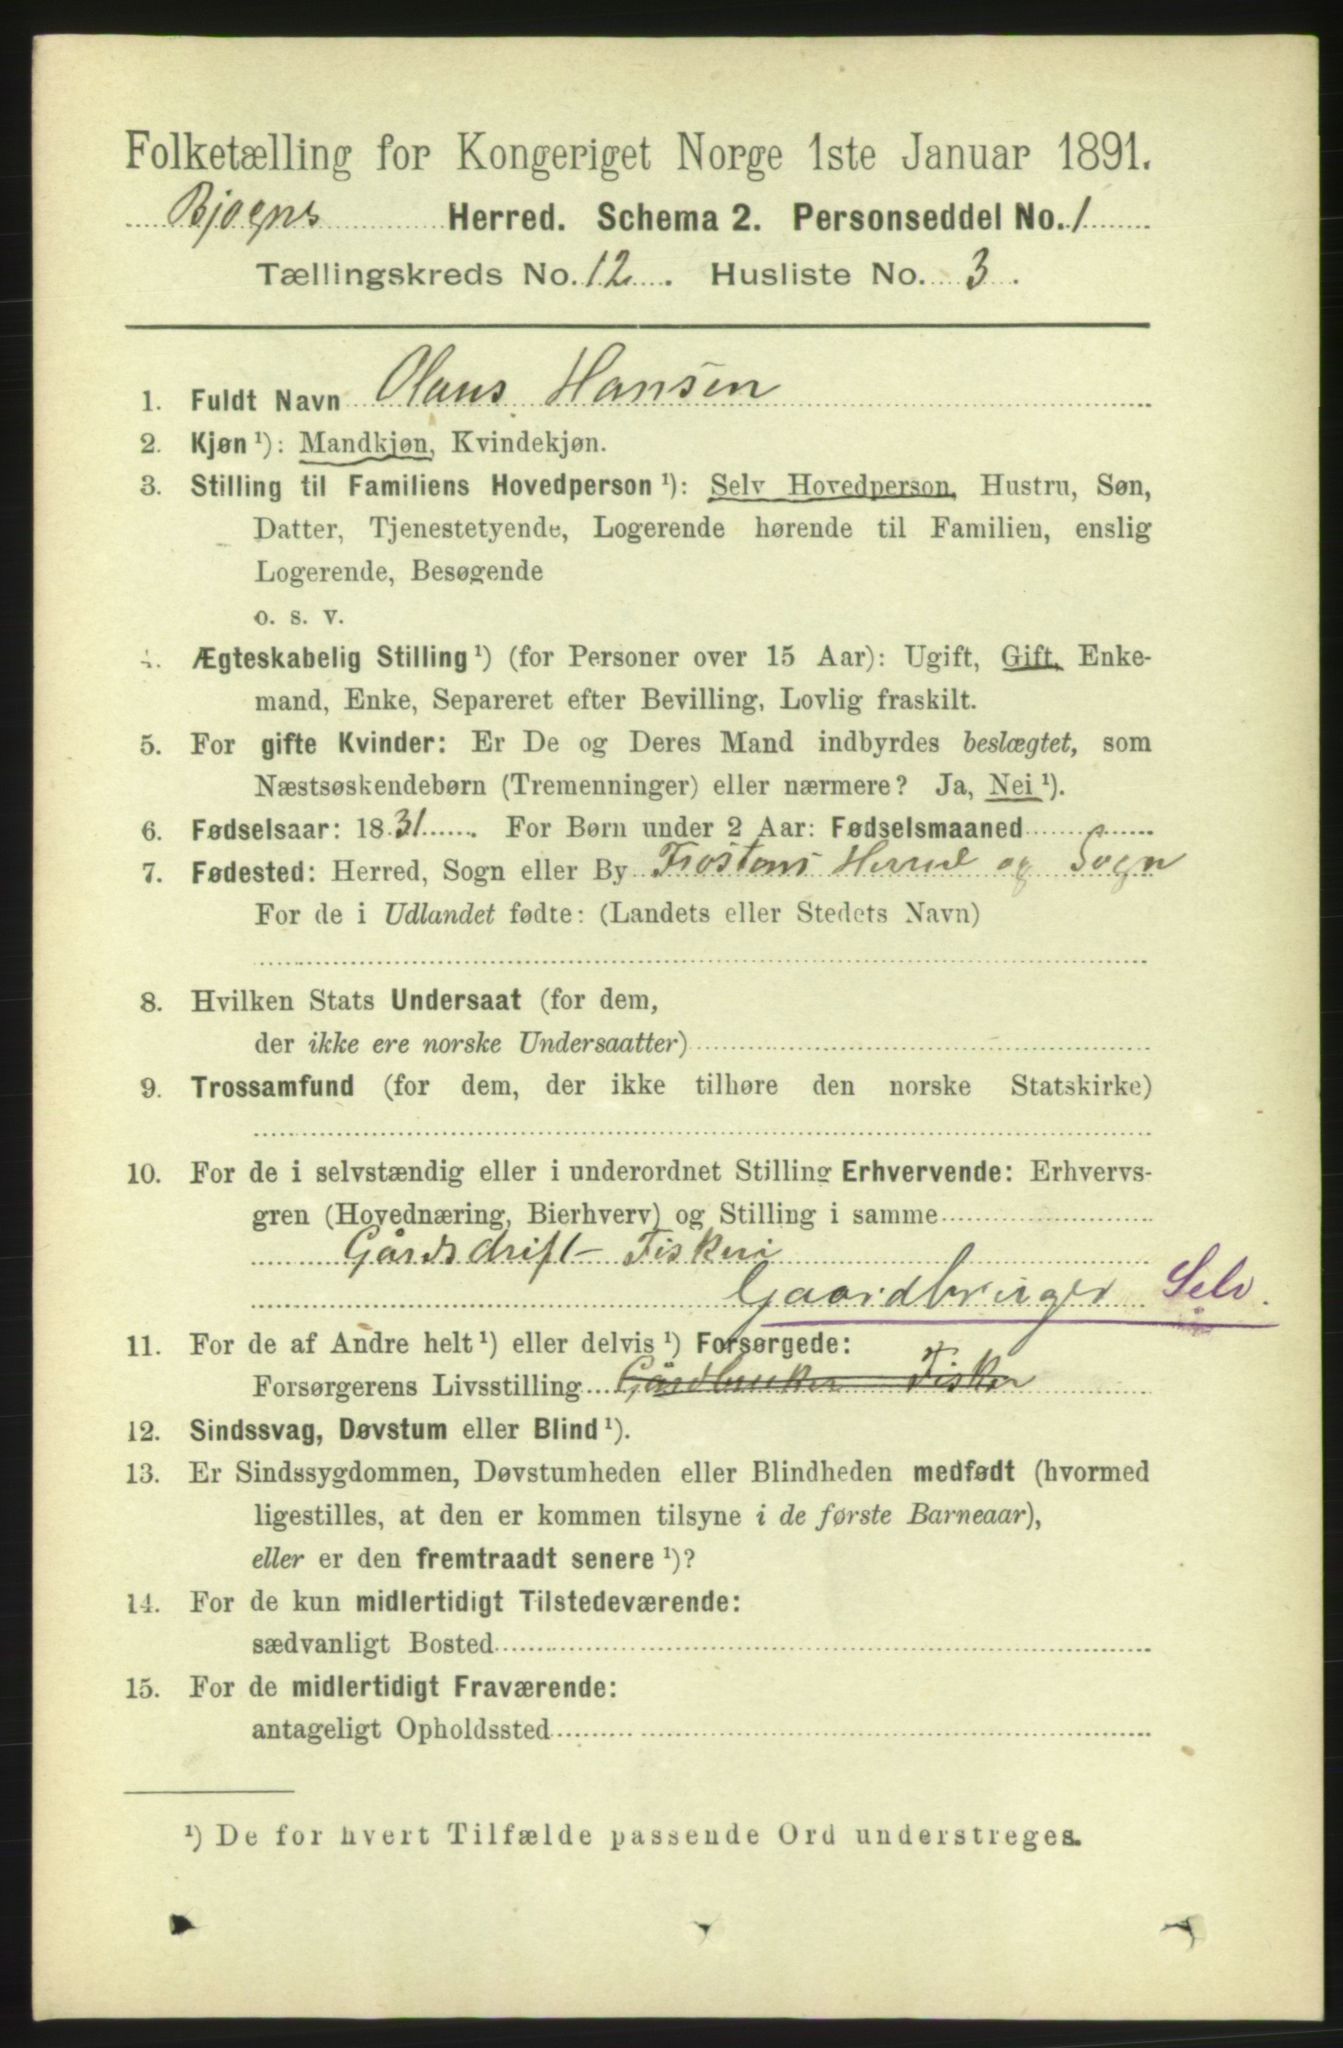 Folketælling for Kongeriget Norge 1ste Januar 1891.
Bjognes Herred. Schema 2. Personseddel No. 1
Tællingskreds No. 12. Husliste No. 3.
1. Fuldt Navn Olaus Hansen
2. Kjøn ¹): Mandkjøn, Kvindekjøn.
3. Stilling til Familiens Hovedperson ¹): Selv Hovedperson, Hustru, Søn,
Datter, Tjenestetyende, Logerende hørende til Familien, enslig
Logerende, Besøgende
o. s. v.
4. Ægteskabelig Stilling ¹) (for Personer over 15 Aar): Ugift, Gift, Enke-
mand, Enke, Separeret efter Bevilling, Lovlig fraskilt.
5. For gifte Kvinder: Er De og Deres Mand indbyrdes beslægtet, som
Næstsøskendebørn (Tremenninger) eller nærmere? Ja, Nei ¹).
6. Fødselsaar: 1831. For Børn under 2 Aar: Fødselsmaaned
7. Fødested: Herred, Sogn eller By Frostens Herred og Sogn
For de i Udlandet fødte: (Landets eller Stedets Navn)
8. Hvilken Stats Undersaat (for dem,
der ikke ere norske Undersaatter)
9. Trossamfund (for dem, der ikke tilhøre den norske Statskirke)
10. For de i selvstændig eller i underordnet Stilling Erhvervende: Erhvervs-
gren (Hovednæring, Bierhverv) og Stilling i samme
Gårdsdrift - Fiskeri
Gaardbruger Selv.
11. For de af Andre helt ¹) eller delvis ¹) Forsørgede:
Forsørgerens Livsstilling Gårdbruker Fisker
12. Sindssvag, Døvstum eller Blind ¹).
13. Er Sindssygdommen, Døvstumheden eller Blindheden medfødt (hvormed
ligestilles, at den er kommen tilsyne i de første Barneaar),
eller er den fremtraadt senere ¹)?
14. For de kun midlertidigt Tilstedeværende:
sædvanligt Bosted
15. For de midlertidigt Fraværende:
antageligt Opholdssted
¹) De for hvert Tilfælde passende Ord understreges.